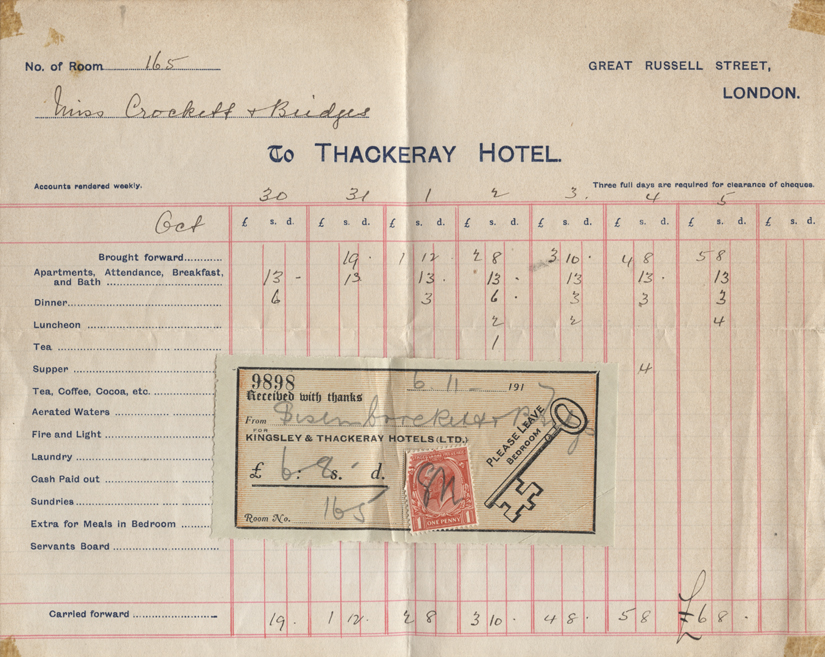 No. of Room 165
GREAT RUSSELL STREET,
LONDON.
Miss Crockett + Bridges
To THACKERAY HOTEL.
Accounts rendered weekly.
Three full days are required for clearance of cheques.
30 31 1 2 3. 4 5
Oct £ s. d. £ s. d. £ s. d. £ s. d. £ s. d. £ s. d. £ s. d. £ s. d.
Brought forward 19 . 1 12 2 8 3 10 . 4 8 5 8
Apartments, Attendance, Breakfast,
and Bath 13 - 13 13 . 13 . 13 13 . 13
Dinner 6 3 6 . 3 3 3
Luncheon 2 2 4
Tea 1
Supper 4
Tea, Coffee, Cocoa, etc.
Aerated Waters
Fire and Light
Laundry
Cash Paid out
Sundries
Extra for Meals in Bedroom
Servants Board
Carried forward 19 . 1 12 . 2 8 3 10 . 4 8 . 5 8 £6 8 .
9898
Received with thanks
6 11 191
From
FOR
KINGSLEY & THACKERAY HOTELS (LTD.)
£ 6: 8s. d.
Room No. 165
PLEASE LEAVE
BEDROOM
1 ONE PENNY 1